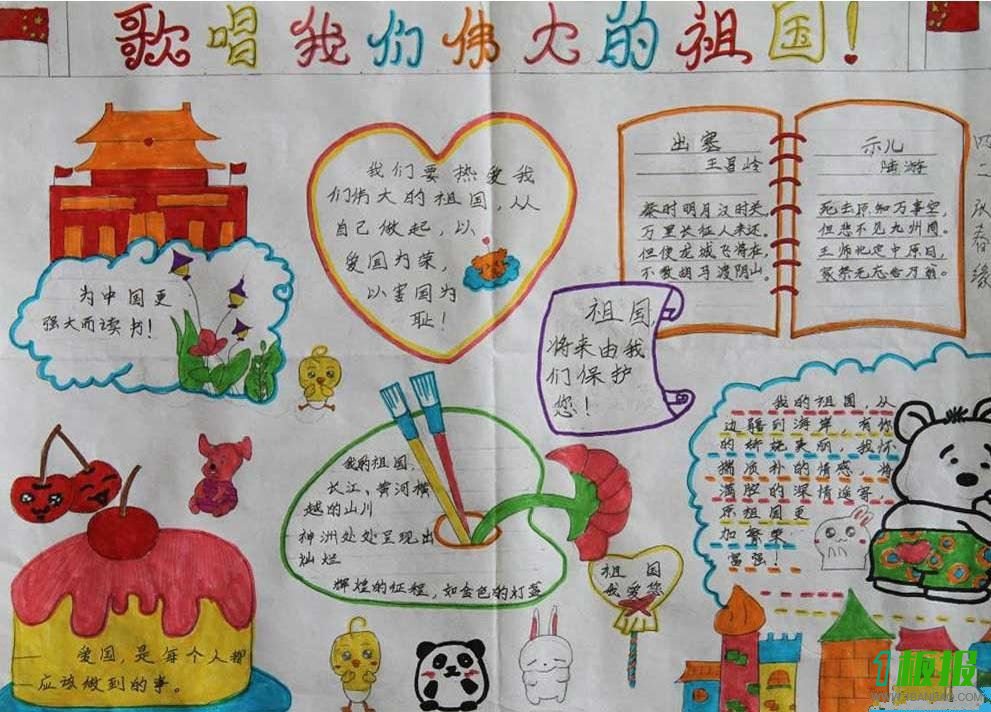 歌唱我们伟大的祖国!
我们要热爱我
们伟大的祖国,从
自己做起,以
爱国为荣,
以害国为
耻!
出塞
王昌岭
秦时明月汉时关,
万里长征人未还。
但使龙城飞将在,
不教胡马渡阴山。
示儿
陆游
死去原知万事空,
但悲不见九州同。
王师北定中原日,
家祭无忘告乃翁。
四二
春缘
为中国更
强大而读书!
祖国,
将来由我
们保护
您!
我的祖国,从
边疆到海岸,有你
的娇娆美丽,我怀
揣质朴的情感,将
满腔的深情遥寄,
原祖国更
加繁荣
富强!
我的祖国,
长江、黄河横
越的山川
神洲处处呈现出
灿烂
辉煌的征程,如金色的灯盏
祖国
我爱您
爱国,是每个人都
应该做到的事。
1板报